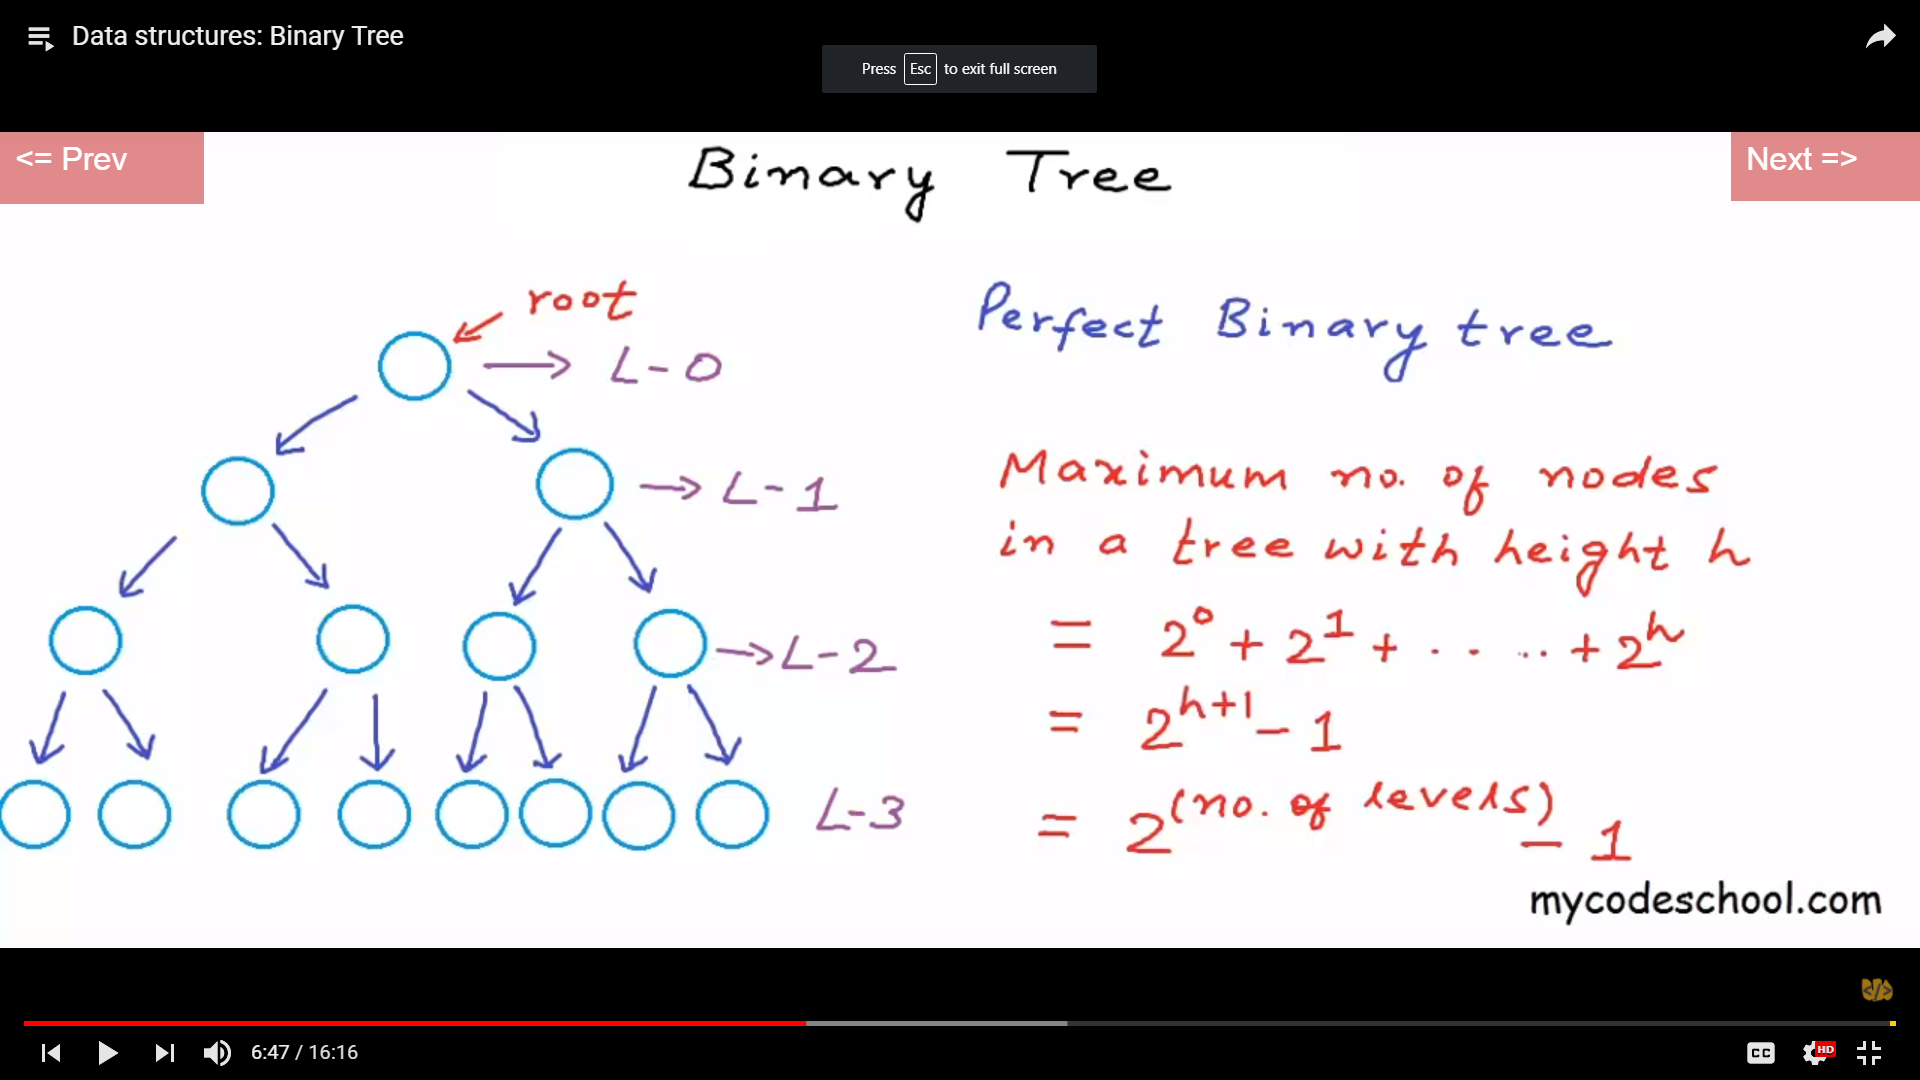 Data structures: Binary Tree
Press Esc to exit full screen
<= Prev
Next =>
Binary Tree
root
L-0
L-1
L-2
L-3
Perfect Binary tree
Maximum no. of nodes
in a tree with height h
= 2⁰ + 2¹ + ..... + 2ʰ
= 2ʰ⁺¹ - 1
= 2^(no. of levels) - 1
mycodeschool.com
6:47 / 16:16
CC
HD